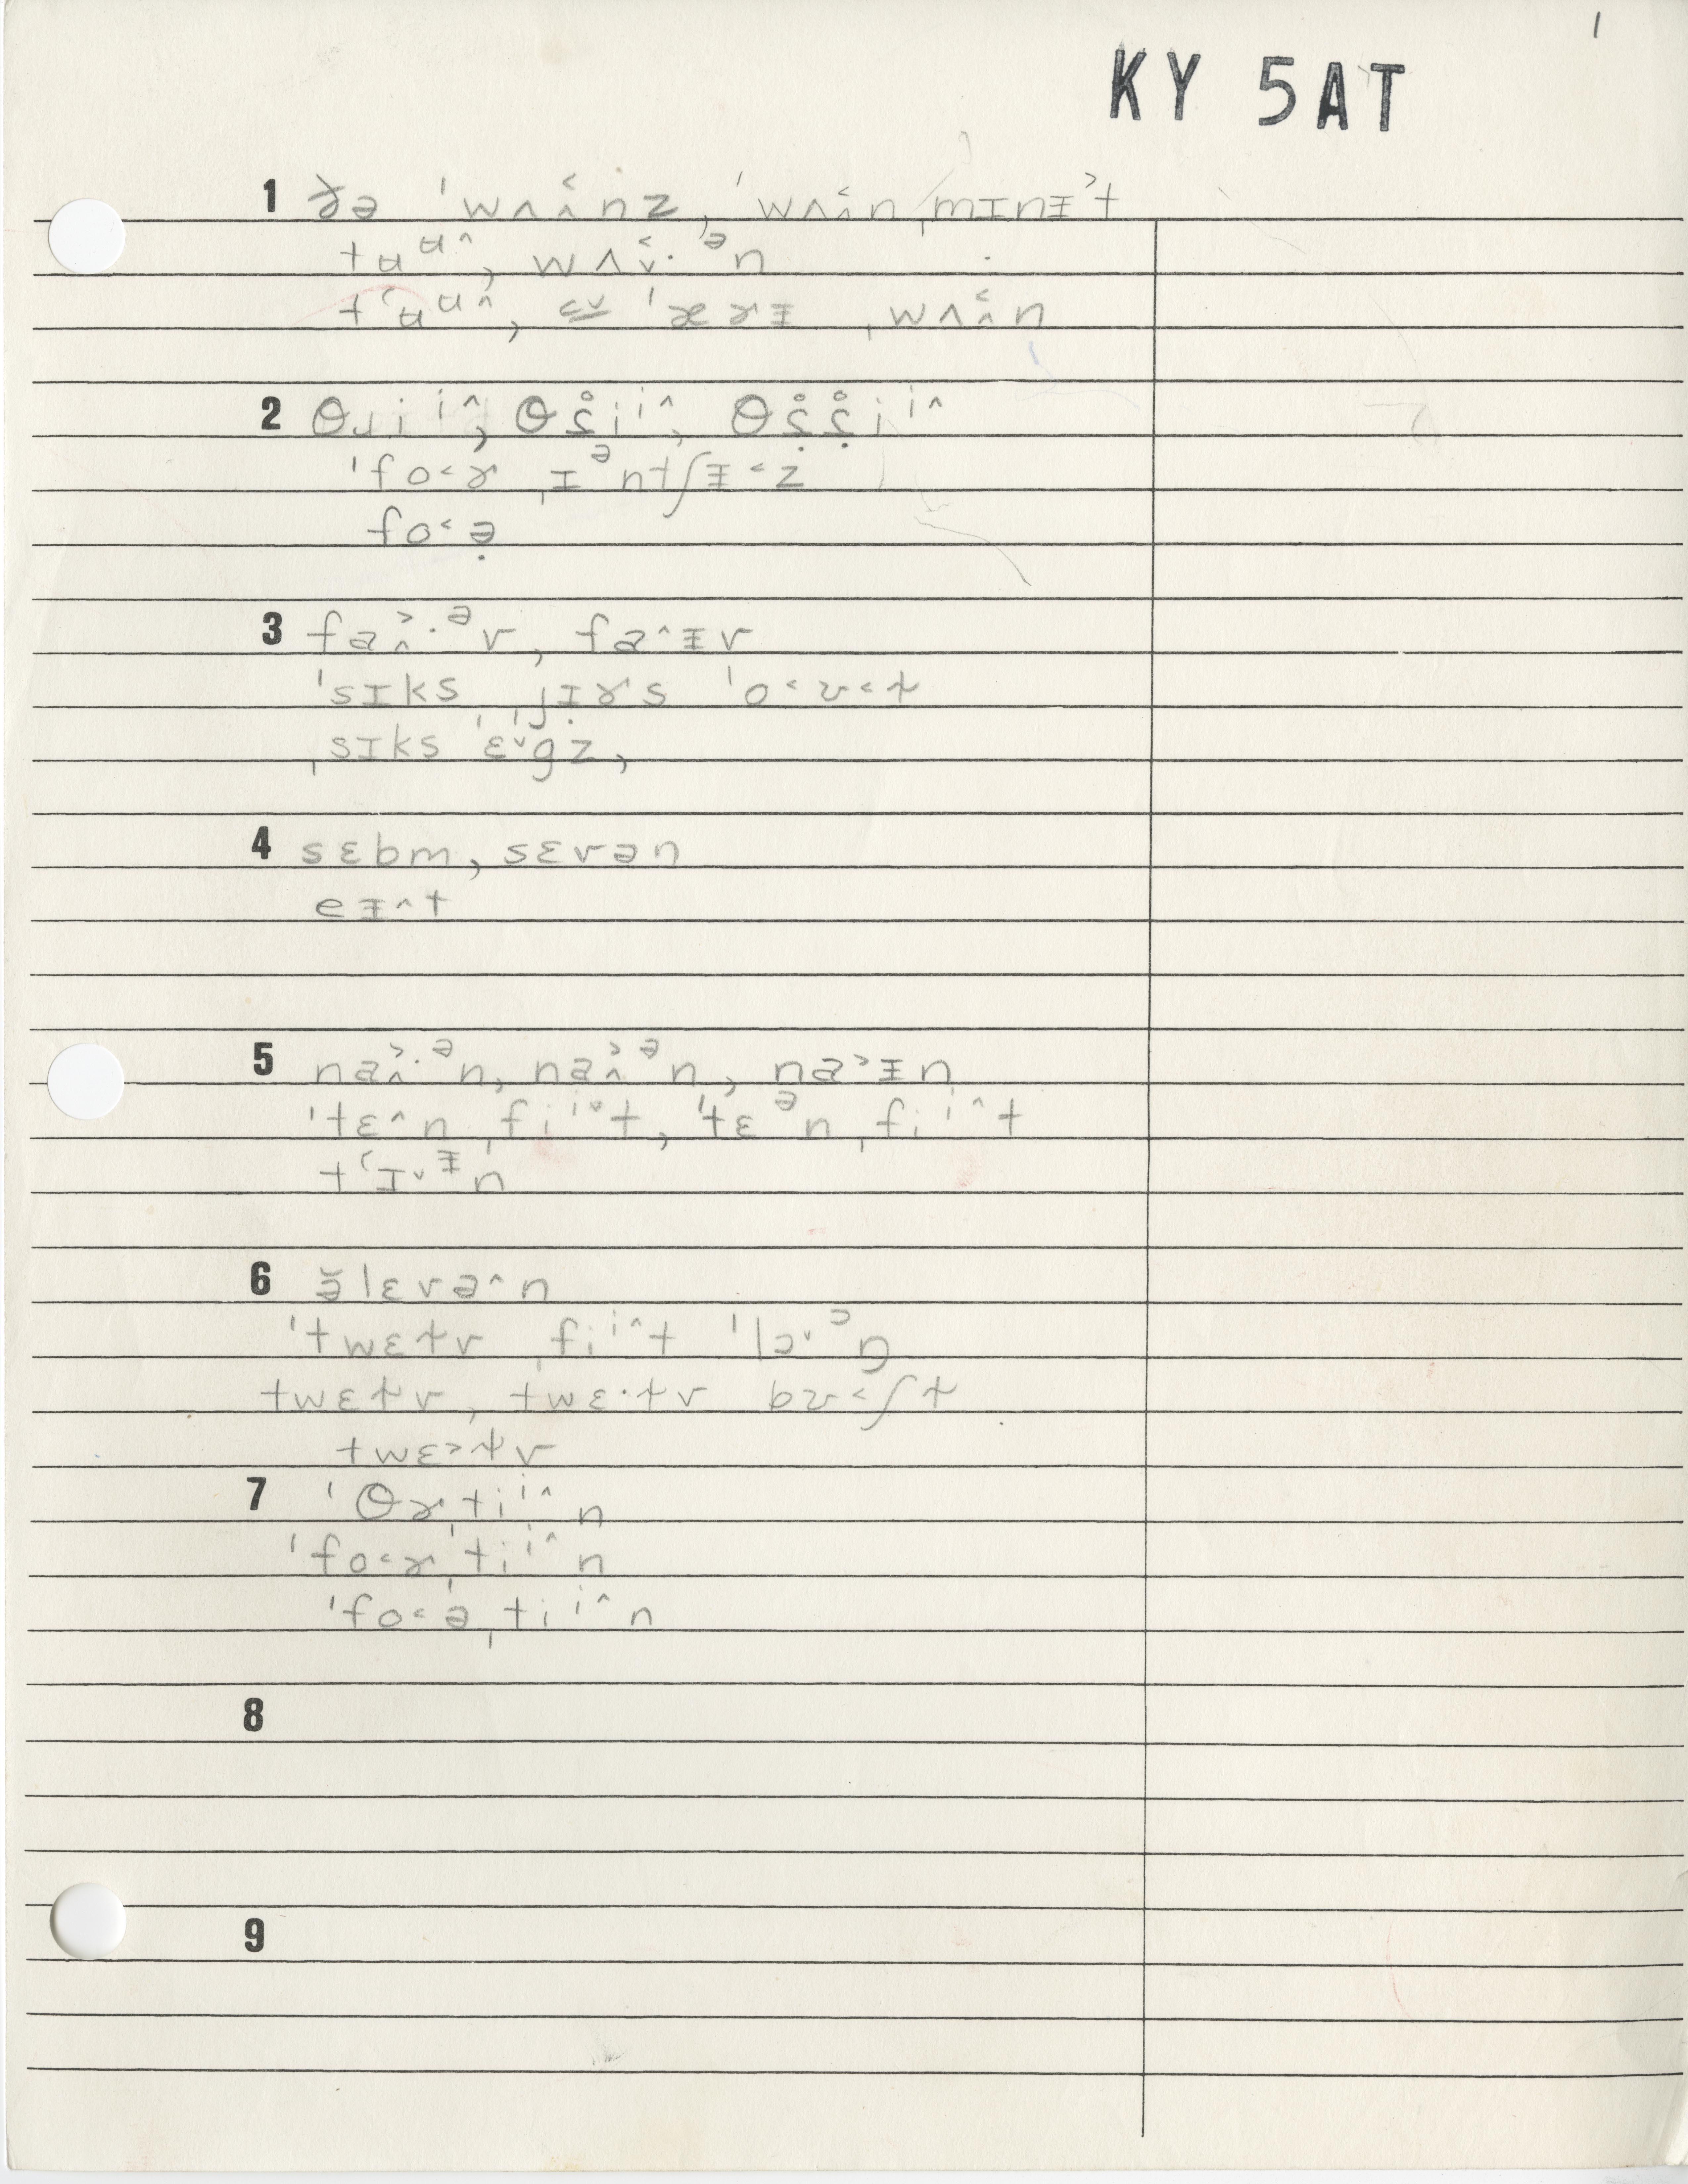 1
KY 5AT
1 ðə ˈwʌ˂̭nz, ˈwʌ˂̭n ˌmɪnᵻ˃t
tʉ�̶ᶶ˄, wʌ˂̬·ᵊn
tʻʉᶶ˄, ˈæɚᵻ ˌwʌ˂̭n
2 θɹiⁱ˄, θɹ̥iⁱ˄,
ˈfo˂ɚ ˌɪᵊntʃᵻ˂z̥
fo˂ə̣
3 fa˃̭·ᵊv, fa˄ᵻv
ˈsɪks ˌjɪɚs ˈo˂ʊ˂ɫ
ˌsɪks ˈɛ˅gz,
4 sɛbm, sɛvən
eᵻ˄t
5 na˃̭·ᵊn, na˃̭ᵊn, na˃ᵻn
ˈtɛ˄n ˌfiⁱ˄t, ˈtɛᵊn ˌfiⁱ˄t
tʻɪ˅ᵻn
6 ə̆lɛvə˄n
ˈtwɛɫv ˌfiⁱ˄t ˈlɔ˅ᵓŋ
twɛɫv, twɛ·ɫv bʊ˂ʃɫ
twɛ˃ɫv
7 ˈθɚˌtiⁱ˄n
ˈfo˂ɚˌtiⁱ˄n
ˈfo˂əˌtiⁱ˄n
8
9